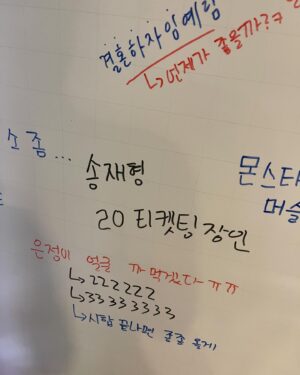 결혼하자 임예림
↳언제가 좋을까?ㅋ
소 좀...
송재형
몬스타
머슬
20 티켓팅 장인
은정이 얼굴 까먹겠다ㅠㅠ
↳222222
↳33333333
↳시험 끝나면 갈게